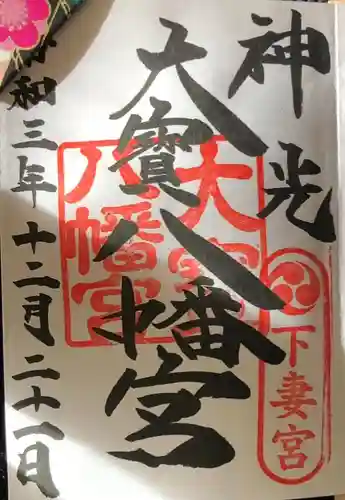 神光
下妻宮
大寳八幡宮
大宝八幡宮
令和三年十二月二十一日